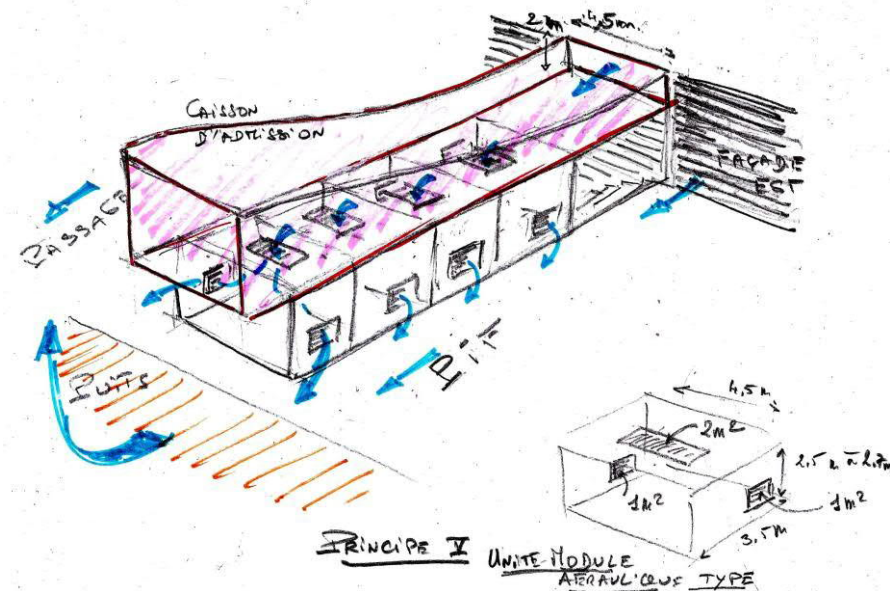 2 m
4,5 m.
CAISSON
D'ADMISSION
FAÇADE
EST
PASSAGE
PUITS
4,5 m
2m²
2,5 à 2,7m
1m²
1m²
3,5m
PRINCIPE V
UNITE-MODULE
AERAULIQUE TYPE